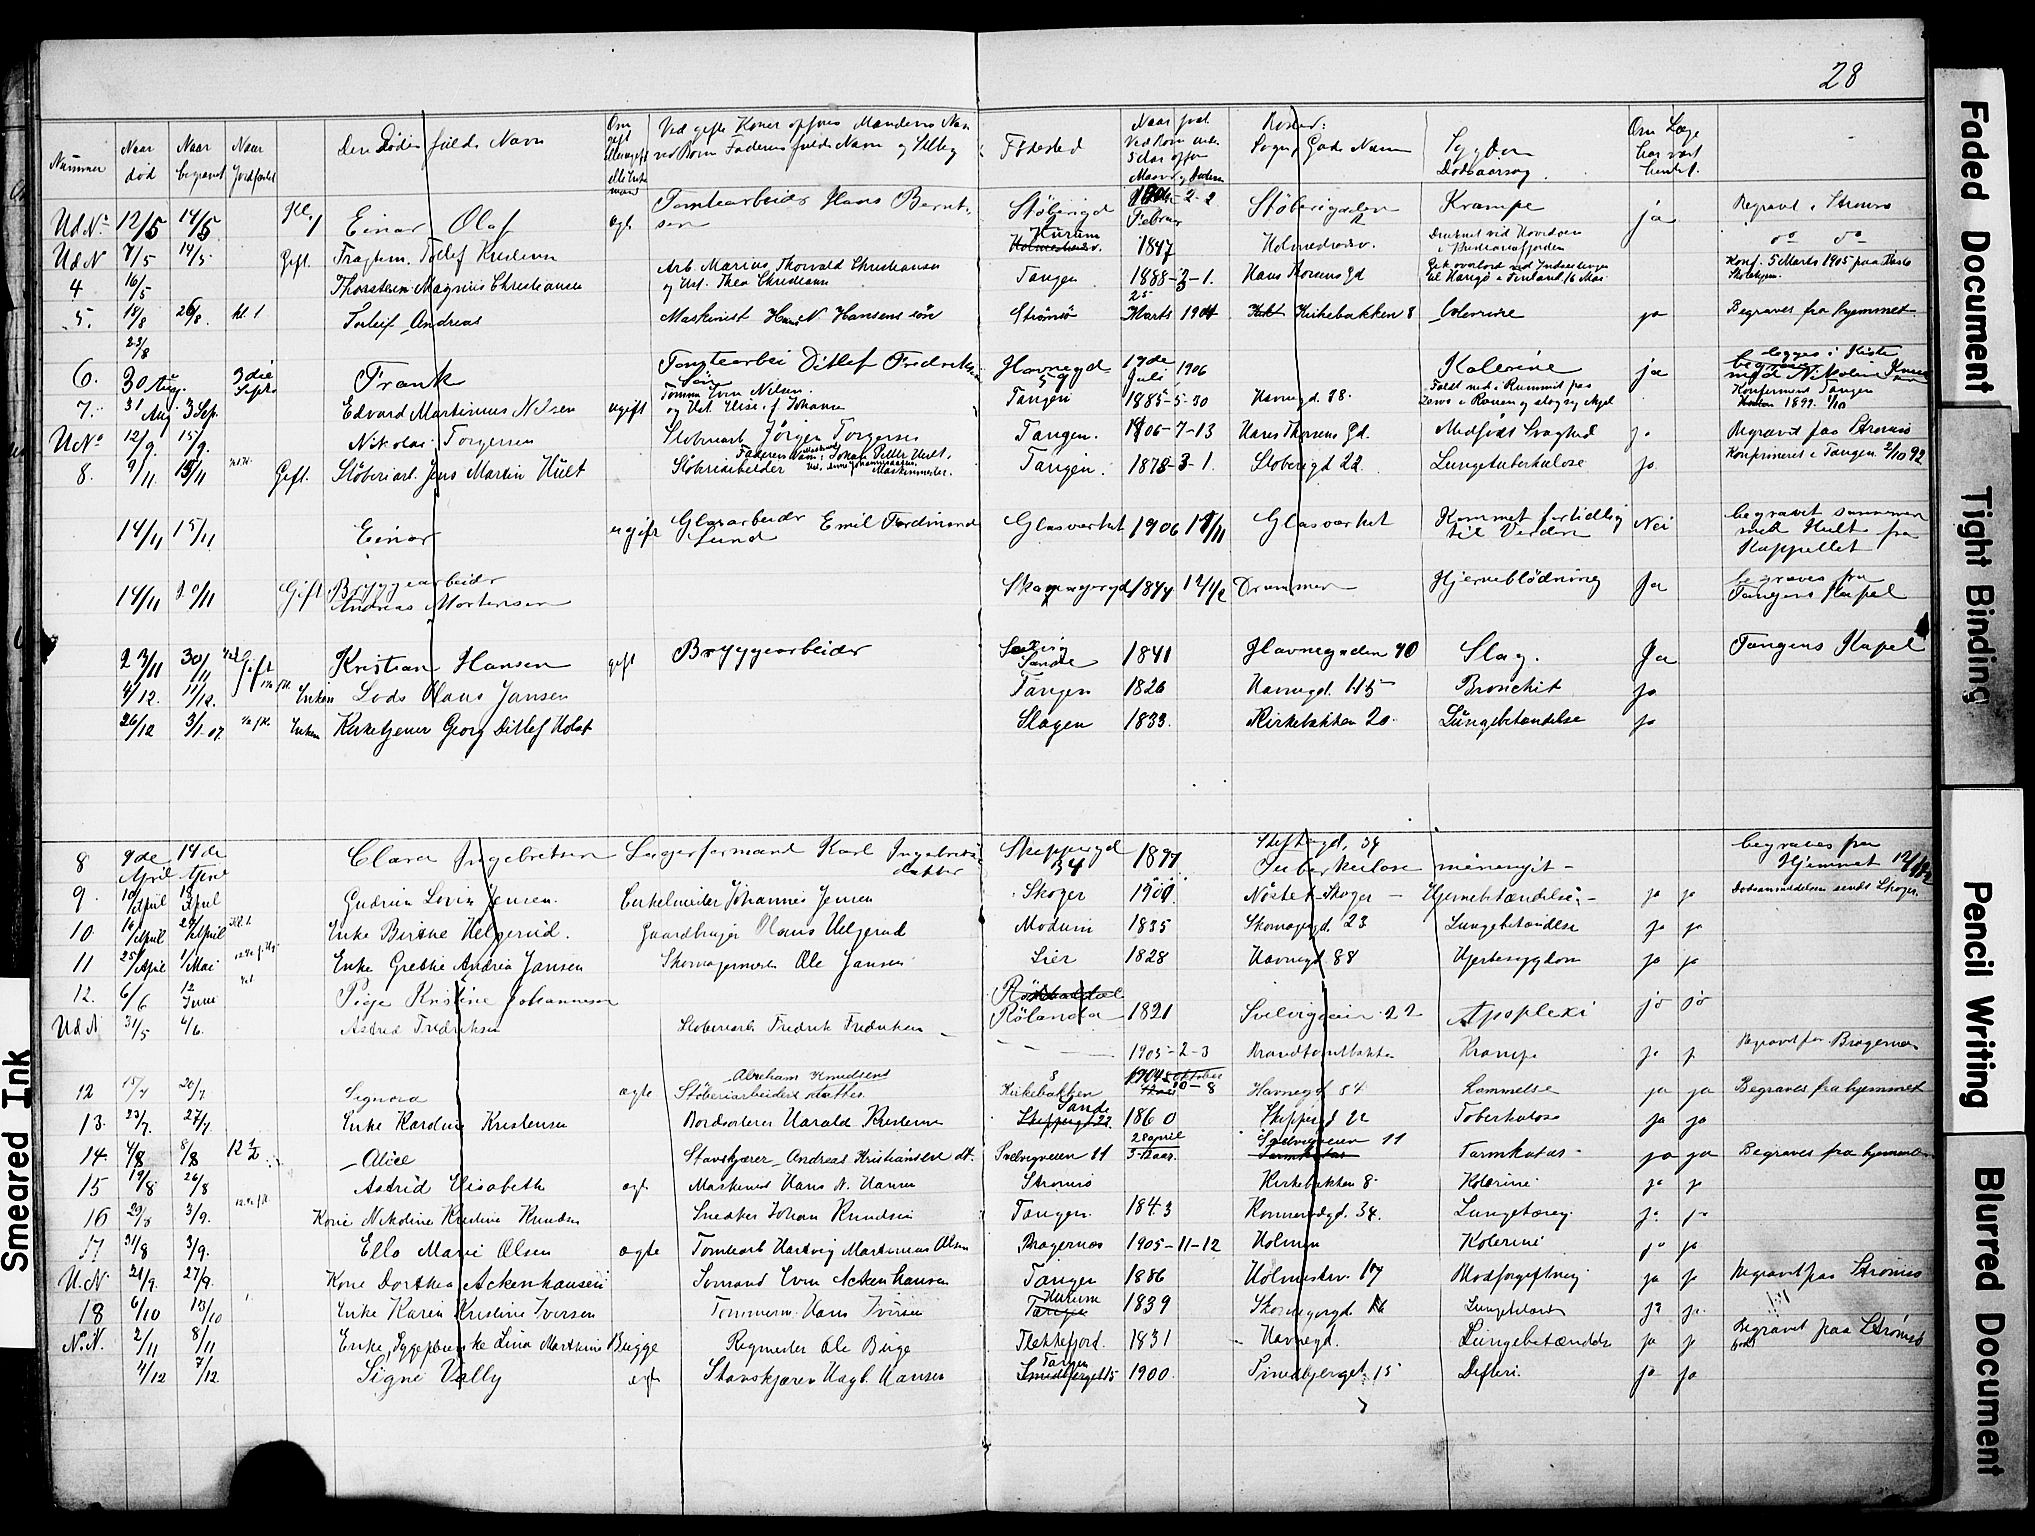 28
Nummer Naar død Naar begravet Naar Jordfæstet Den Dødes fulde Navn Om gift ugift elle Enkemand Ved gifte Koner opføres Mandens Navn ved Børn Faderens fulde Navn og Stilling Fødested Naar født Ved Børn under 5 Aar opføres Maaned og Datum Bosted: Sogn, Gade Navn Sygdom Dødsaarsag Om Læge har vært hentet.
Ud N. 12/5 14/5 Einar Olaf ægte Tomtearbeider Hans Berntsen Støberigd 1906-2-2 Februar Støberigaden Krampe ja Begravet i Strømsø
Ud N 7/5 14/5 Gift. Fragtem. Tollef Kristensen Hurum Holmestrandsv. 1847 Holmestrandsv. Druknet ved Hovedøen i Kristianiafjorden do do
4 16/5 Thorstein Magnus Christiansen Arb Marius Thorvald Christiansen og Ust. Thea Christiansen Tangen 1888-3-1. Hans Thorsens Gd Gik overbord ved Indseilingen til Hangø i Finland 16 Mai Konf. 5 Marts 1905 paa
5. 18/8 26/8. kl. 1 Torleif Andreas Maskinist Hans N Hansens søn Strømsø 25 Marts 1904 Kirkebakken 8 Colerine ja Begraves fra hjemmet
22/8
6. 30 Aug. 3die Sept. Frank Tomtearbei Ditlef Fredriksen Søn Havnegd 59 17de Juli 1906 Kolerine ja begraves legges i Kiste med Nikoline Knudsen
7. 31 Aug 3 Sep. Edvard Martinius Nilsen ugift Tømm Even Nilsen og Ust. Elise f. Johansen Tangen 1885-5-30 Havnegd. 78. Faldt ned i Rummet paa i Rouen og slog sig ihjel Konfirmeret Tangen 1899. 1/10
U N. 12/9. 15/9. Nikolai Torgersen Stoberiarb Jörgen Torgersen Tangen. 1906-7-13 Hans Thorsens Gd. Medfödt Svaghed ja Begravet paa Strømsø
8. 9/11. 15/11 Gift. Støberiarb. Jens Martin Hult Støberiarbeider Faderens Navn: Johan Petter Hult, Maskinmester. Tangen. 1878-3-1. Stoberigd 22. Lungetuberkulose ja Konfirmeret i Tangen 2/10 92
14/11 15/11 Einar ugift Glasarbeider Emil Ferdinand Lund Glasværket 1906 14/11 Glasværket Kommet fortidlig til Verden Nei begravet sammen med Hult fra Kappellet
14/11 20/11 Gift Bryggearbeider Andreas Mortensen Skomagergd 1844 12 1/2 Drammen Hjerneblödning Ja begraves fra Tangens Kapel
23/11 30/11 Gift Kristian Hansen gift Bryggearbeider Sande 1841 Havnegaden 40 Slag. Ja Tangens Kapel
4/12. 11/12. Enkem Lods Claus Jansen Tangen 1826 Havnegd. 115 Bronchit ja
26/12 3/1-07. Enkem Kirketjener Georg Ditlef Holst Slagen 1833. Kirkebakken 20. Lungebetændelse ja
8 9de April 14de April Clara Ingebretsen Lagerformand Karl Ingebretsens datter Skippergd 34 1897 Skippergd. 34 Tuberkulose meningit - begraves fra Hjemmet 12 1/2
9. 10/April 18 April Gudrun Lovise Jensen. Cirkelmester Johannes Jensen Skoger 1900 Nöstet Skoger - Hjernebetændelse - ja ja Dødsanmeldelsen sendt Skoger.
10 16/April 20/April Enke Birthe Helgerud. Gaardbruger Claus Helgerud Modum 1835 Skomagergd. 23 Lungebetændelse ja ja
11 25/April 1/Mai Enke Grethe Andrea Jansen Skomagermester Ole Jansen Lier 1828 Havnegd 88 Hjertesygdom ja ja
12. 6/6 12 Juni Pige Kristine Johannesen Rölanda 1821 Svelvigveien 22 Apoplexi ja ja
Ud N 31/5 6/6. Astrid Fredriksen Stoberiarb Fredrik Fredriksen 1905-2-3 Brandtomtbakken Krampe ja ja Begravet fra Bragernæs
12 15/7 20/7 Signora ægte Støberiarbeider Abraham Knudsens datter Kirkebakken 3 1904 20-8 Havnegd 54 Lammelse ja ja Begraves fra hjemmet
13. 23/7. 27/7. Enke Karoline Kristensen Bordsorterer Harald Kristensen Sande Skippergd 22 1860 Skippergd 22 Toberkulose ja ja
14. 4/8 8/8 12 1/2 Alice Stavskjærer Andreas Kristiansen dt. Svelvigveien 11 28 april Svelvigveien 11 Tarmkatar ja ja Begraves fra hjemmet
15 19/8 26/8 Astrid Elisabeth ægte Maskinist Hans N. Hansen Strømsø Kirkebakken 8. Kolerine ja ja
16 29/8 3/9. Kone Nikoline Kristine Knudsen Snedker Johan Knudsen Tangen. 1843 Konnerudgd. 34. Lungebetæn. ja ja
17 31/8 3/9. Ella Marie Olsen ægte Tomtearb Hartvig Martinius Olsen Bragernæs 1905-11-12 Holmen Kolerine ja ja
U.N. 21/9. 27/9. Kone Dorthea Ackenhausen Sømand Even Ackenhausen Tangen 1886 Holmestrv. 17 Blodforgiftning ja ja Begravet paa Strømsø
18 6/10 13/10 Enke Karen Kristine Iversen Tømmerm. Hans Iversen Hurum Tangen 1839 Skomagergd. 16 ja ja
N.N. 2/11 8/11 Enke, Sygepleierske Lina Mathine Bugge Regmester Ole Buge Flekkefjord. 1831 Havnegd. Lungebetændelse ja ja Begravet paa Strømsø
4/12 7/12 Signe Vally ægte Stavskjærer Hagb. Hansen Tangen Smedbjerget 15 1900 Smedbjerget 15 Difteri. ja ja
Faded Document
Tight Binding
Pencil Writing
Blurred Document
Smeared Ink